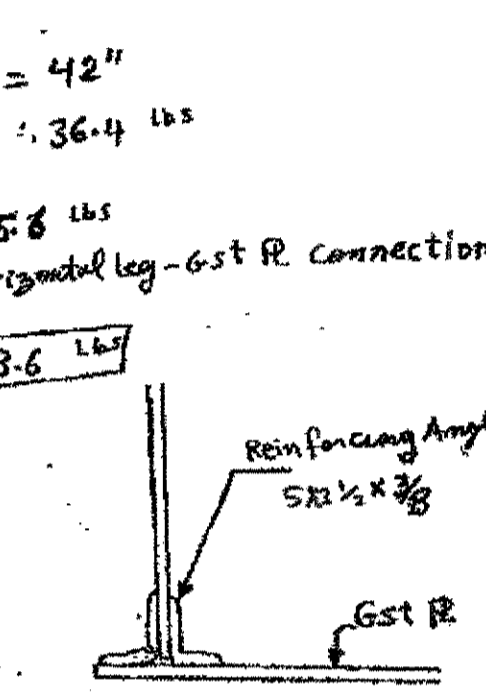 = 42"
∴ 36.4 Lbs
Lbs
leg - Gst PL connection
3.6 Lbs
Reinforcing Angl
5x2 1/2 x 3/8
Gst PL